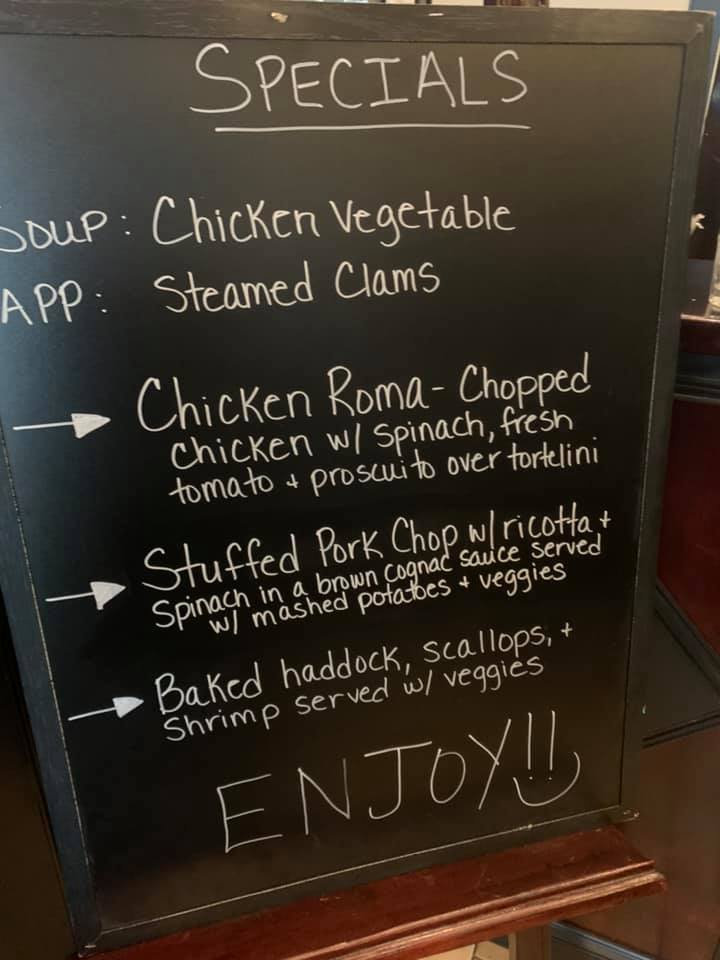 SPECIALS
SOUP: Chicken Vegetable
APP: Steamed Clams
Chicken Roma - Chopped
chicken w/ spinach, fresh
tomato + proscuito over tortelini
Stuffed Pork Chop w/ ricotta +
Spinach in a brown cognac sauce served
w/ mashed potatoes + veggies
Baked haddock, scallops, +
Shrimp served w/ veggies
ENJOY!!